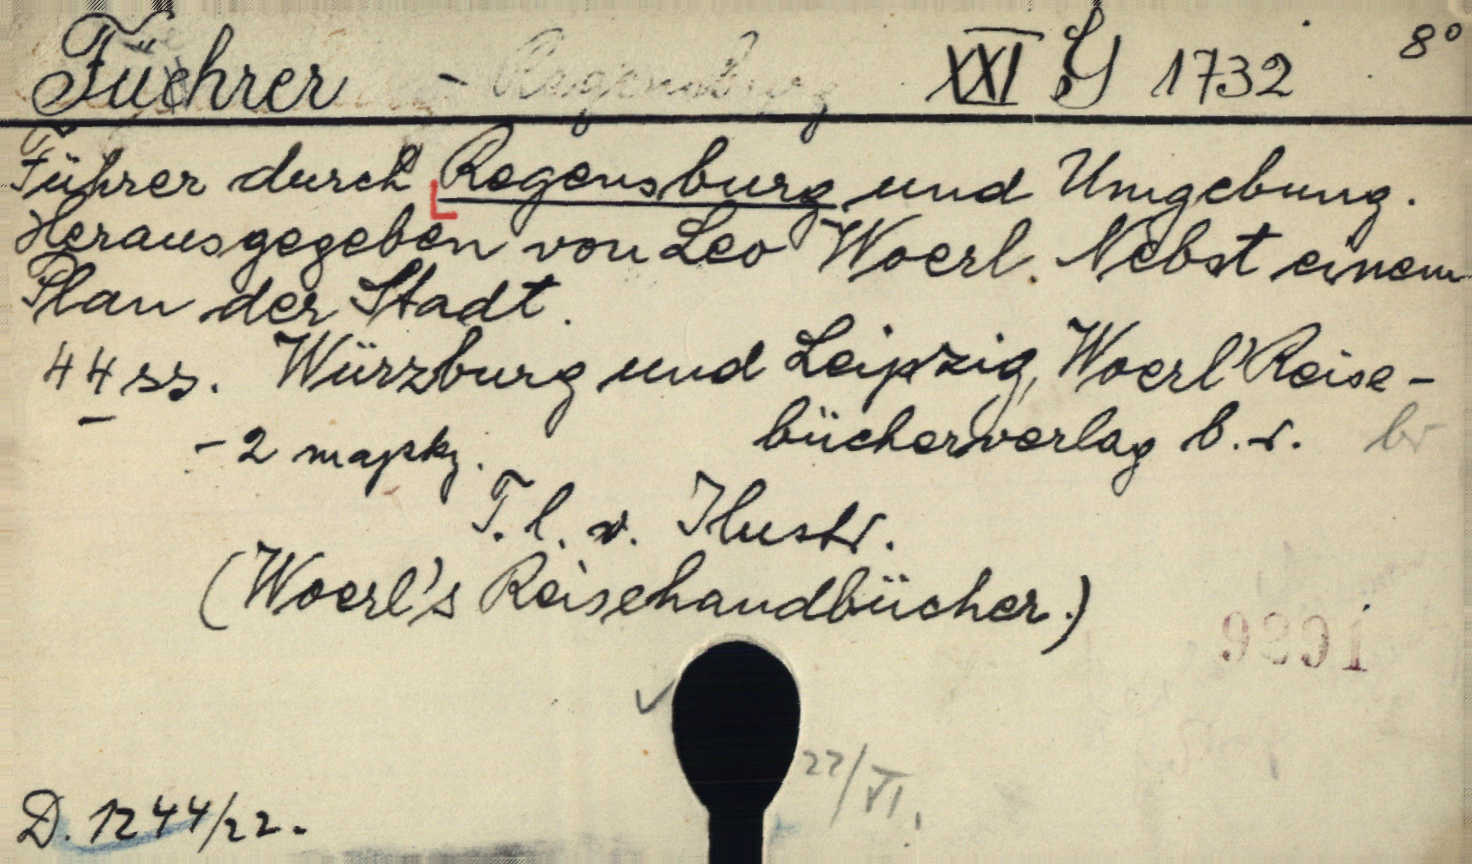 Führer - Regensburg XXI G 1732 8°
Führer durch Regensburg und Umgebung.
Herausgegeben von Leo Woerl. Nebst einem
Plan der Stadt.
44 ss. Würzburg und Leipzig, Woerl' Reise-
bücherverlag b.r. br
- 2 mapky.
T. l. v. Ilustr.
(Woerl's Reisehandbücher.)
9891
22/VI.
D. 1244/22.